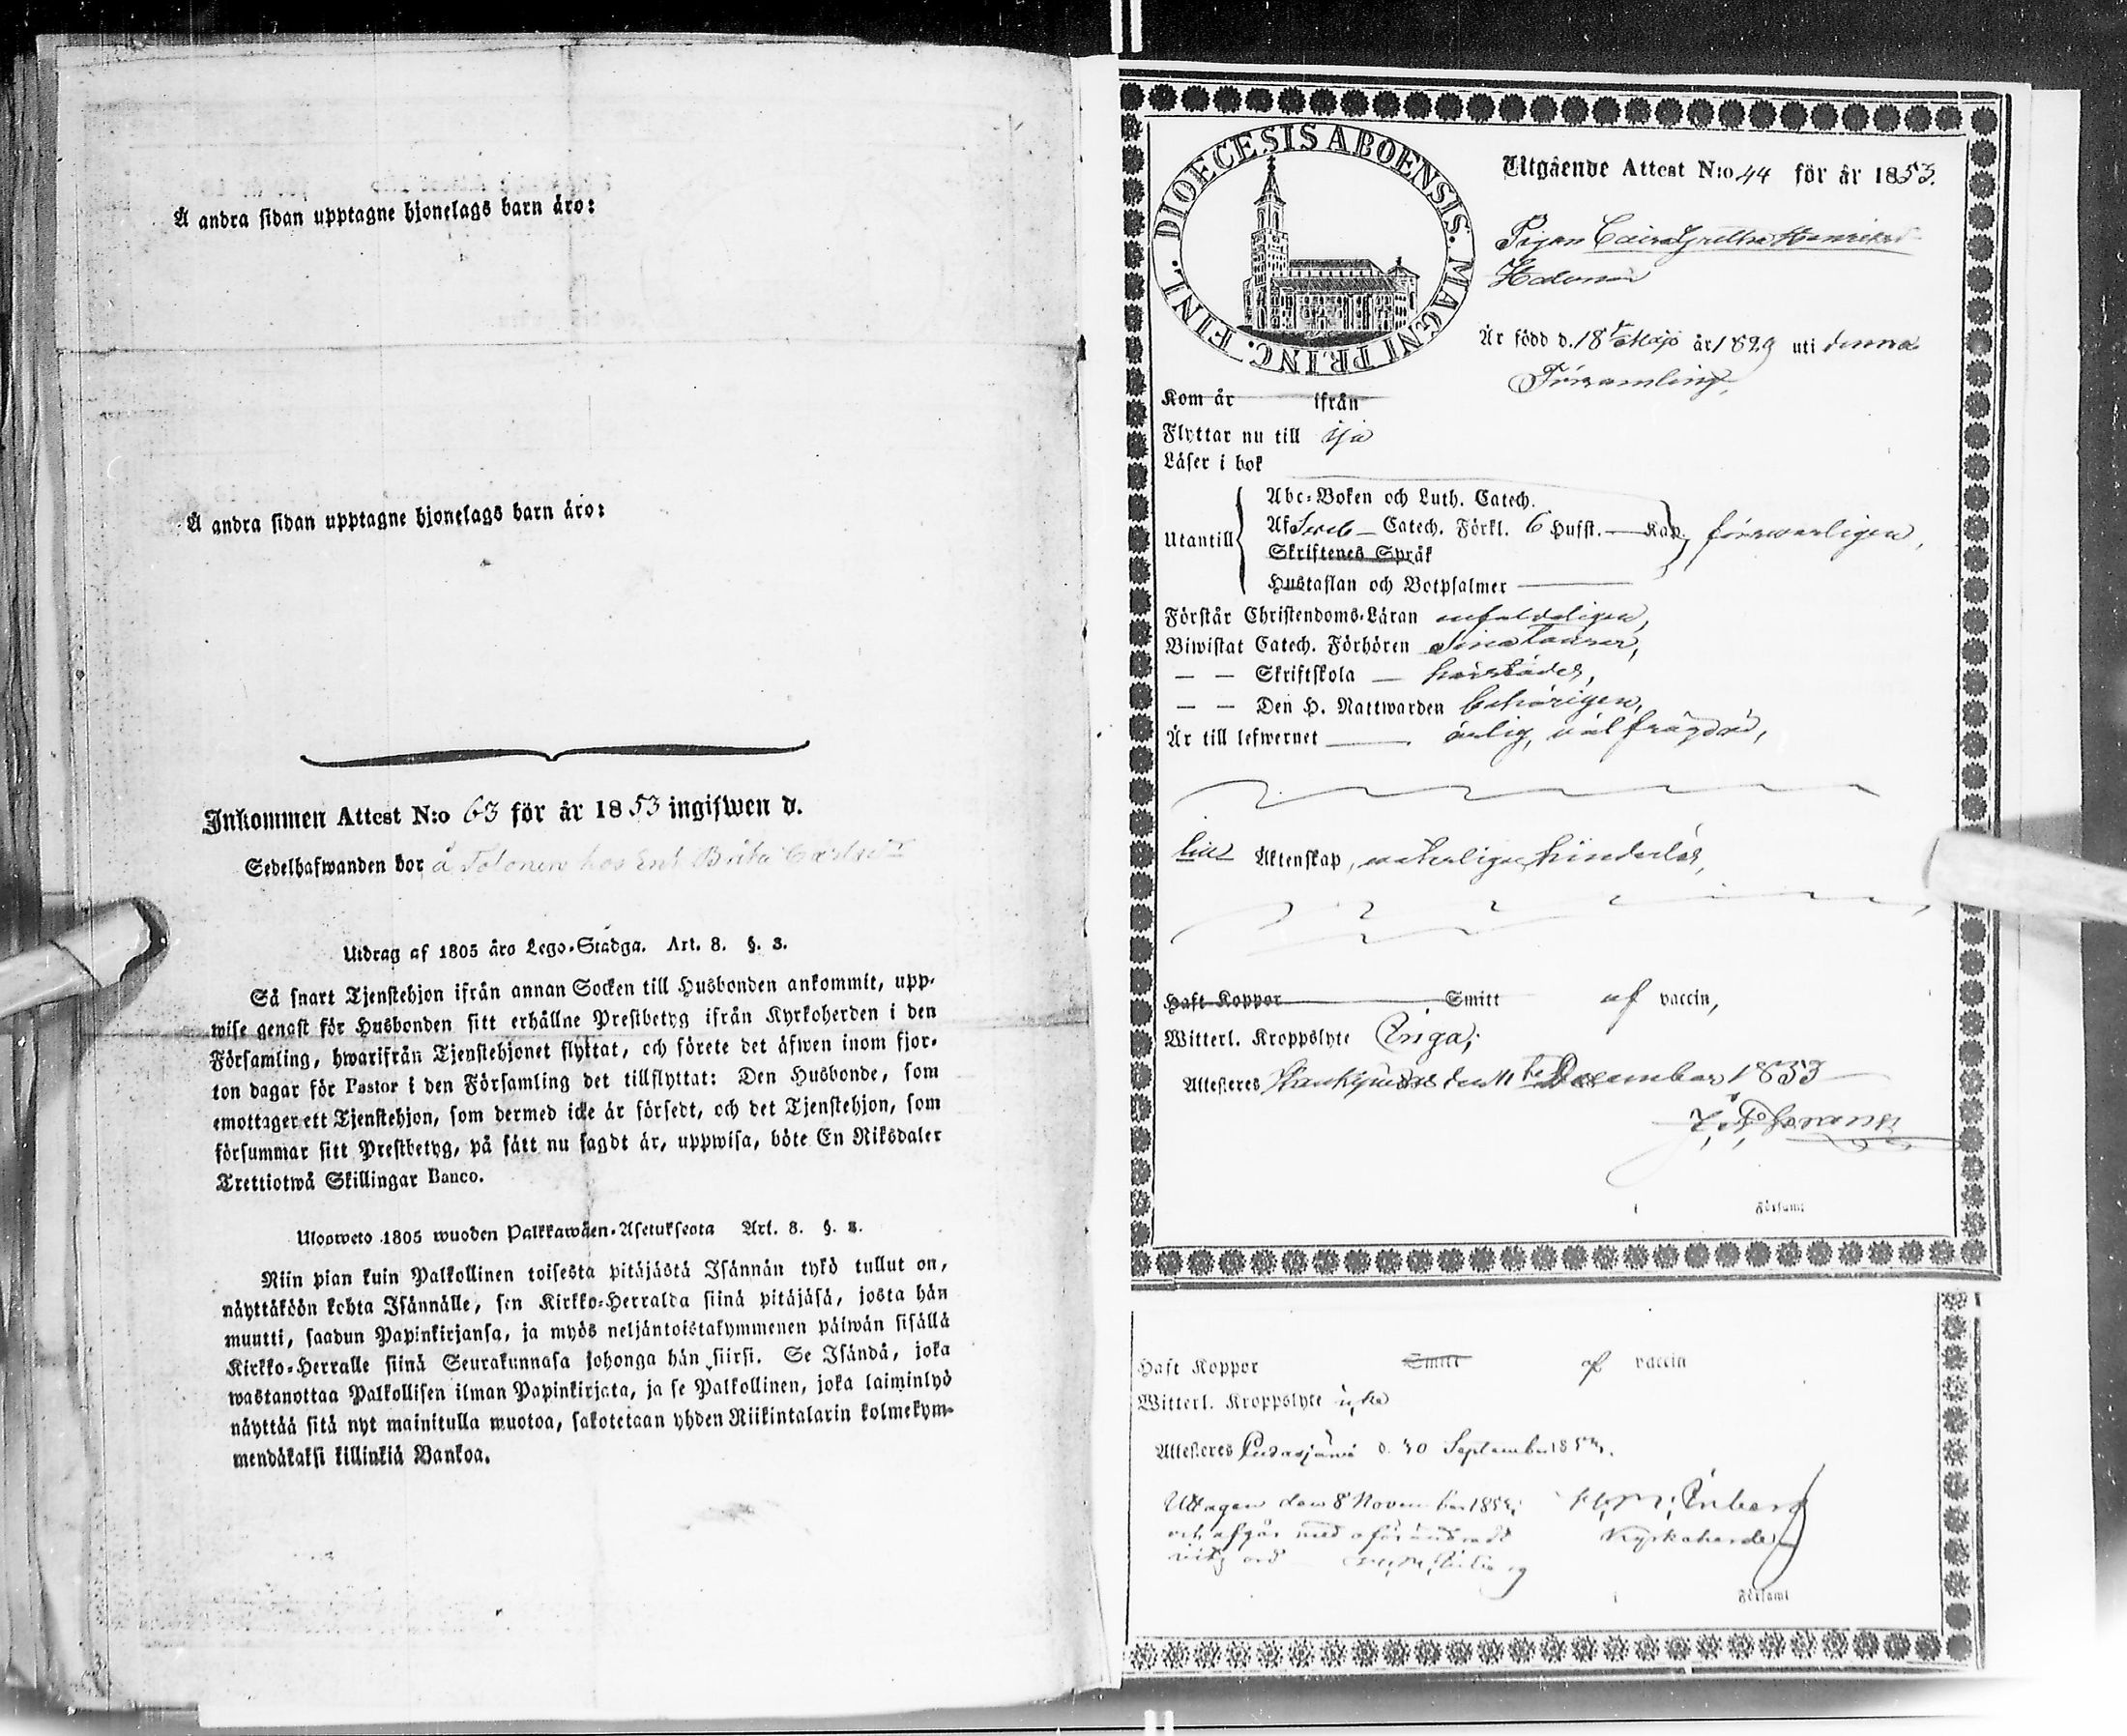 Å andra sidan upptagne hjonelags barn äro:
Å andra sidan upptagne hjonelags barn äro:
Inkommen Attest N:o 63 för år 1853 ingifwen d.
Sedelhafwanden bor å Tolonen hos Enk Brita Carlsdtr
Utdrag af 1805 års Lego-Stadga. Art. 8. §. 3.
Så snart Tjenstehjon ifrån annan Socken till Husbonden ankommit, upp-
wise genast för Husbonden sitt erhållne Prestbetyg ifrån Kyrkoherden i den
Församling, hwarifrån Tjenstehjonet flyttat, och förete det äfwen inom fjor-
ton dagar för Pastor i den Församling det tillflyttat: Den Husbonde, som
emottager ett Tjenstehjon, som dermed icke är försedt, och det Tjenstehjon, som
försummar sitt Prestbetyg, på sätt nu sagdt är, uppwisa, böte En Riksdaler
Trettiotwå Skillingar Banco.
Ulosweto 1805 wuoden Palkkawäen-Asetuksesta Art. 8. §. 3.
Niin pian kuin Palkollinen toisesta pitäjästä Isännän tykö tullut on,
näyttäköön kohta Isännälle, sen Kirkko-Herralda siinä pitäjäsä, josta hän
muutti, saadun Papinkirjansa, ja myös neljäntoistakymmenen päiwän sisällä
Kirkko-Herralle siinä Seurakunnasa johonga hän siirsi. Se Isändä, joka
wastanottaa Palkollisen ilman Papinkirjata, ja se Palkollinen, joka laiminlyö
näyttää sitä nyt mainitulla wuotoa, sakotetaan yhden Riikintalarin kolmekym-
mendäkaksi killinkiä Bankoa.
DIOECESIS ABOENSIS. MAGNI PRINC. FINL.
Utgående Attest N:o 44 för år 1853.
Pigan Caisa Gretha Henriksd
Är född d. 18 Maji år 1829 uti denna
Församling,
Kom år ifrån
Flyttar nu till Ijo
Läser i bok
Abc-Boken och Luth. Catech.
Utantill Af Sveb Catech. Förkl. 6 Hufst. Kap. försvarligen,
Skriftenes Språk
Hustaflan och Botpsalmer
Förstår Christendoms-Läran enfaldeligen,
Biwistat Catech. Förhören sina Laurer,
Skriftskola
Den H. Nattwarden behörigen,
Är till lefwernet ärlig, väl frägdad,
till Äktenskap, veterligen hinderlös,
Haft Koppor Smitt af vaccin,
Witterl. Kroppslyte Inga;
Attesteras den 11 December 1853
Församl
Haft Koppor Smitt af vaccin
Witterl. Kroppslyte icke
Attesteras Pudasjärvi d. 30 September 1853.
Uttagen den 8 November 1853;
och afgår med oförändradt
vits ord
H. M. Enberg
Kyrkoherde
Församl